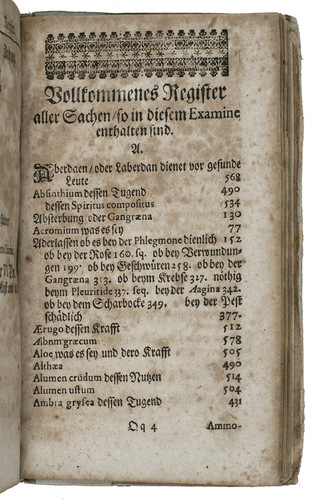 Vollkommenes Register
aller Sachen / so in diesem Examine
enthalten sind.
A.
Aberdaen / oder Laberdan dienet vor gesunde
Leute 568
Absinthium dessen Tugend 490
dessen Spiritus compositus 534
Absterbung oder Gangræna 130
Acromium was es sey 77
Aderlassen ob es bey der Phlegmone dienlich 152
ob bey der Rose 160. sq. ob bey Verwundun-
gen 199. ob bey Geschwüren 258. ob bey der
Gangræna 313. ob bey Krebse 327. nöthig
beym Pleuritide 337. seq. bey der Angina 342.
ob bey dem Scharbocke 349. bey der Pest
schädlich 377.
Ærugo dessen Krafft 512
græcum 578
Aloe was es sey und dero Krafft 505
Althæa 490
Alumen crudum dessen Nutzen 514
Alumen ustum 504
Ambra grysea dessen Tugend 431
Qq 4 Ammo-